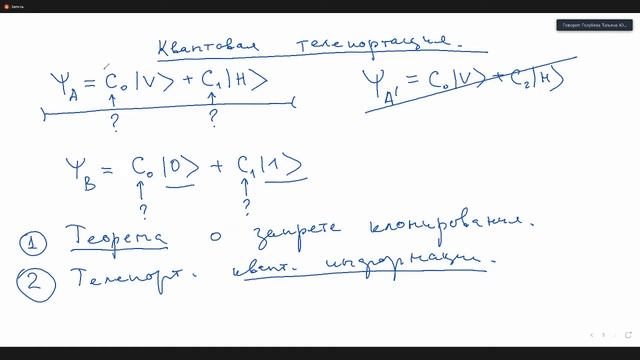 Запись
Говорит: Голубева Татьяна Ю...
Квантовая телепортация.
Ψ_A = C₀|V⟩ + C₁|H⟩
Ψ_A' = C₀|V⟩ + C₂|H⟩
? ?
Ψ_B = C₀|0⟩ + C₁|1⟩
? ?
① Теорема о запрете клонирования.
② Телепорт. квант. информации.